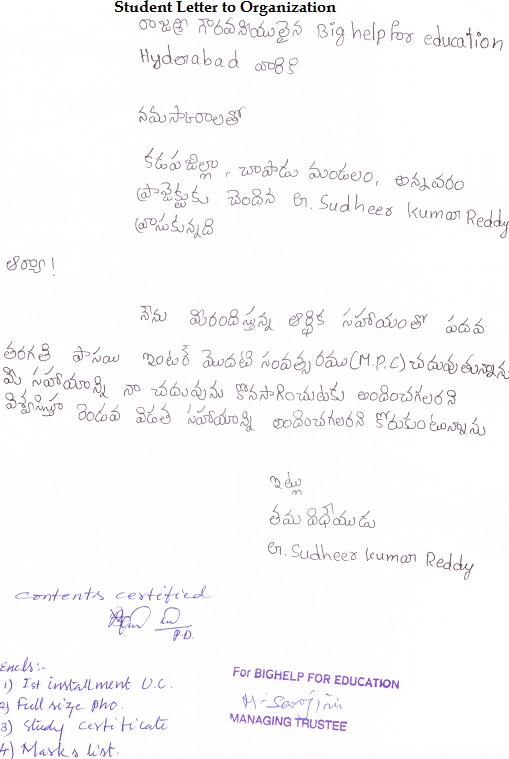 Student Letter to Organization
రాజశ్రీ గౌరవనీయులైన Big help for education
Hyderabad వారికి
నమస్కారాలతో
కడపజిల్లా, చాపాడు మండలం, అన్నవరం
ప్రాజెక్టుకు చెందిన G. Sudheer Kumar Reddy
వ్రాసుకున్నది
ఆర్యా!
నేను మీరందిస్తున్న ఆర్థిక సహాయంతో పదవ
తరగతి పాసయి ఇంటర్ మొదటి సంవత్సరము (M.P.C) చదువుతున్నాను
మీ సహాయాన్ని నా చదువును కొనసాగించుటకు అందించగలరని
విశ్వసిస్తూ రెండవ విడత సహాయాన్ని అందించగలరని కోరుకుంటున్నాను
ఇట్లు
తమ విధేయుడు
G. Sudheer Kumar Reddy
Contents certified
P.D.
Encls:-
1) Ist installment U.C.
2) Full size pho.
3) Study certificate
4) Marks list.
For BIGHELP FOR EDUCATION
MANAGING TRUSTEE